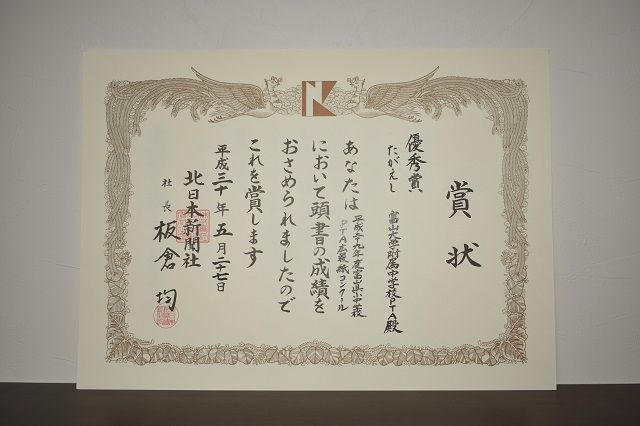 賞状
優秀賞
たがえし
富山大学附属中学校PTA殿
あなたは 平成二十九年度富山県小中学校
PTA広報紙コンクール
において頭書の成績を
おさめられましたので
これを賞します
平成三十年五月二十七日
北日本新聞社
社長 板倉 均